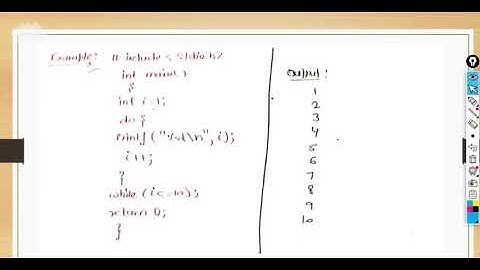 Example: # include < stdio.h>
int main()
{
int i=1;
do {
printf ("%d\n", i);
i++;
}
while (i<=10);
return 0;
}
output :
1
2
3
4
5
6
7
8
9
10